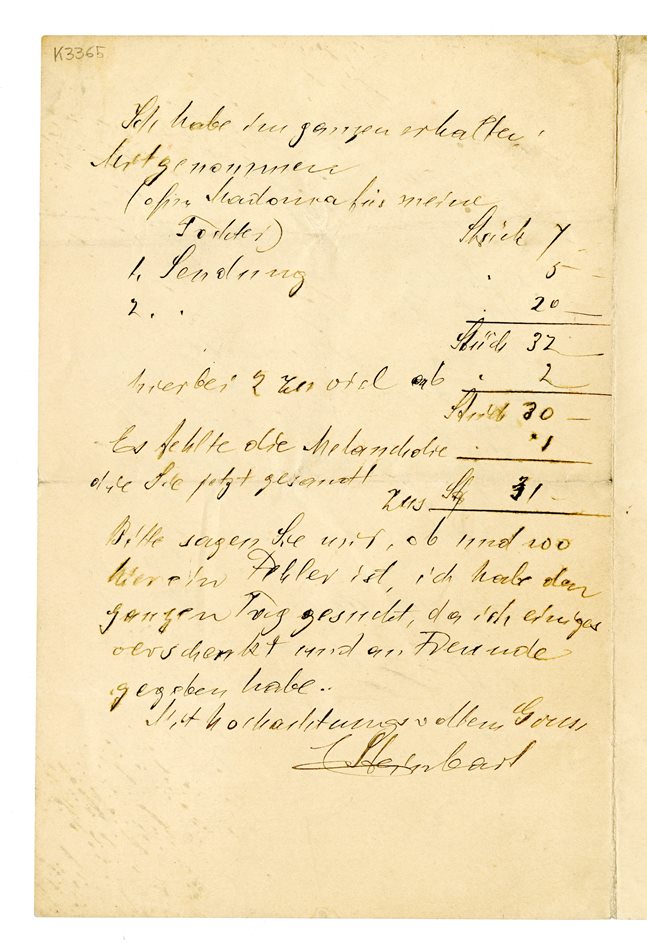 K3365
Ich habe im ganzen erhalten:
Mitgenommen
(ohne Madonna für meine
Tochter) Stück 7
1. Sendung " 5 –
2. " " 20 –
Stück 32
hierbei 2 zu viel ab " 2
Stück 30 –
Es fehlte die Melancholie " 1
die Sie jetzt gesandt
zus St 31 –
Bitte sagen Sie mir, ob und wo
hier ein Fehler ist, ich habe den
ganzen Tag gesucht, da ich einiges
verschenkt und an Freunde
gegeben habe.
Mit hochachtungsvollem Gruss
Steinbart